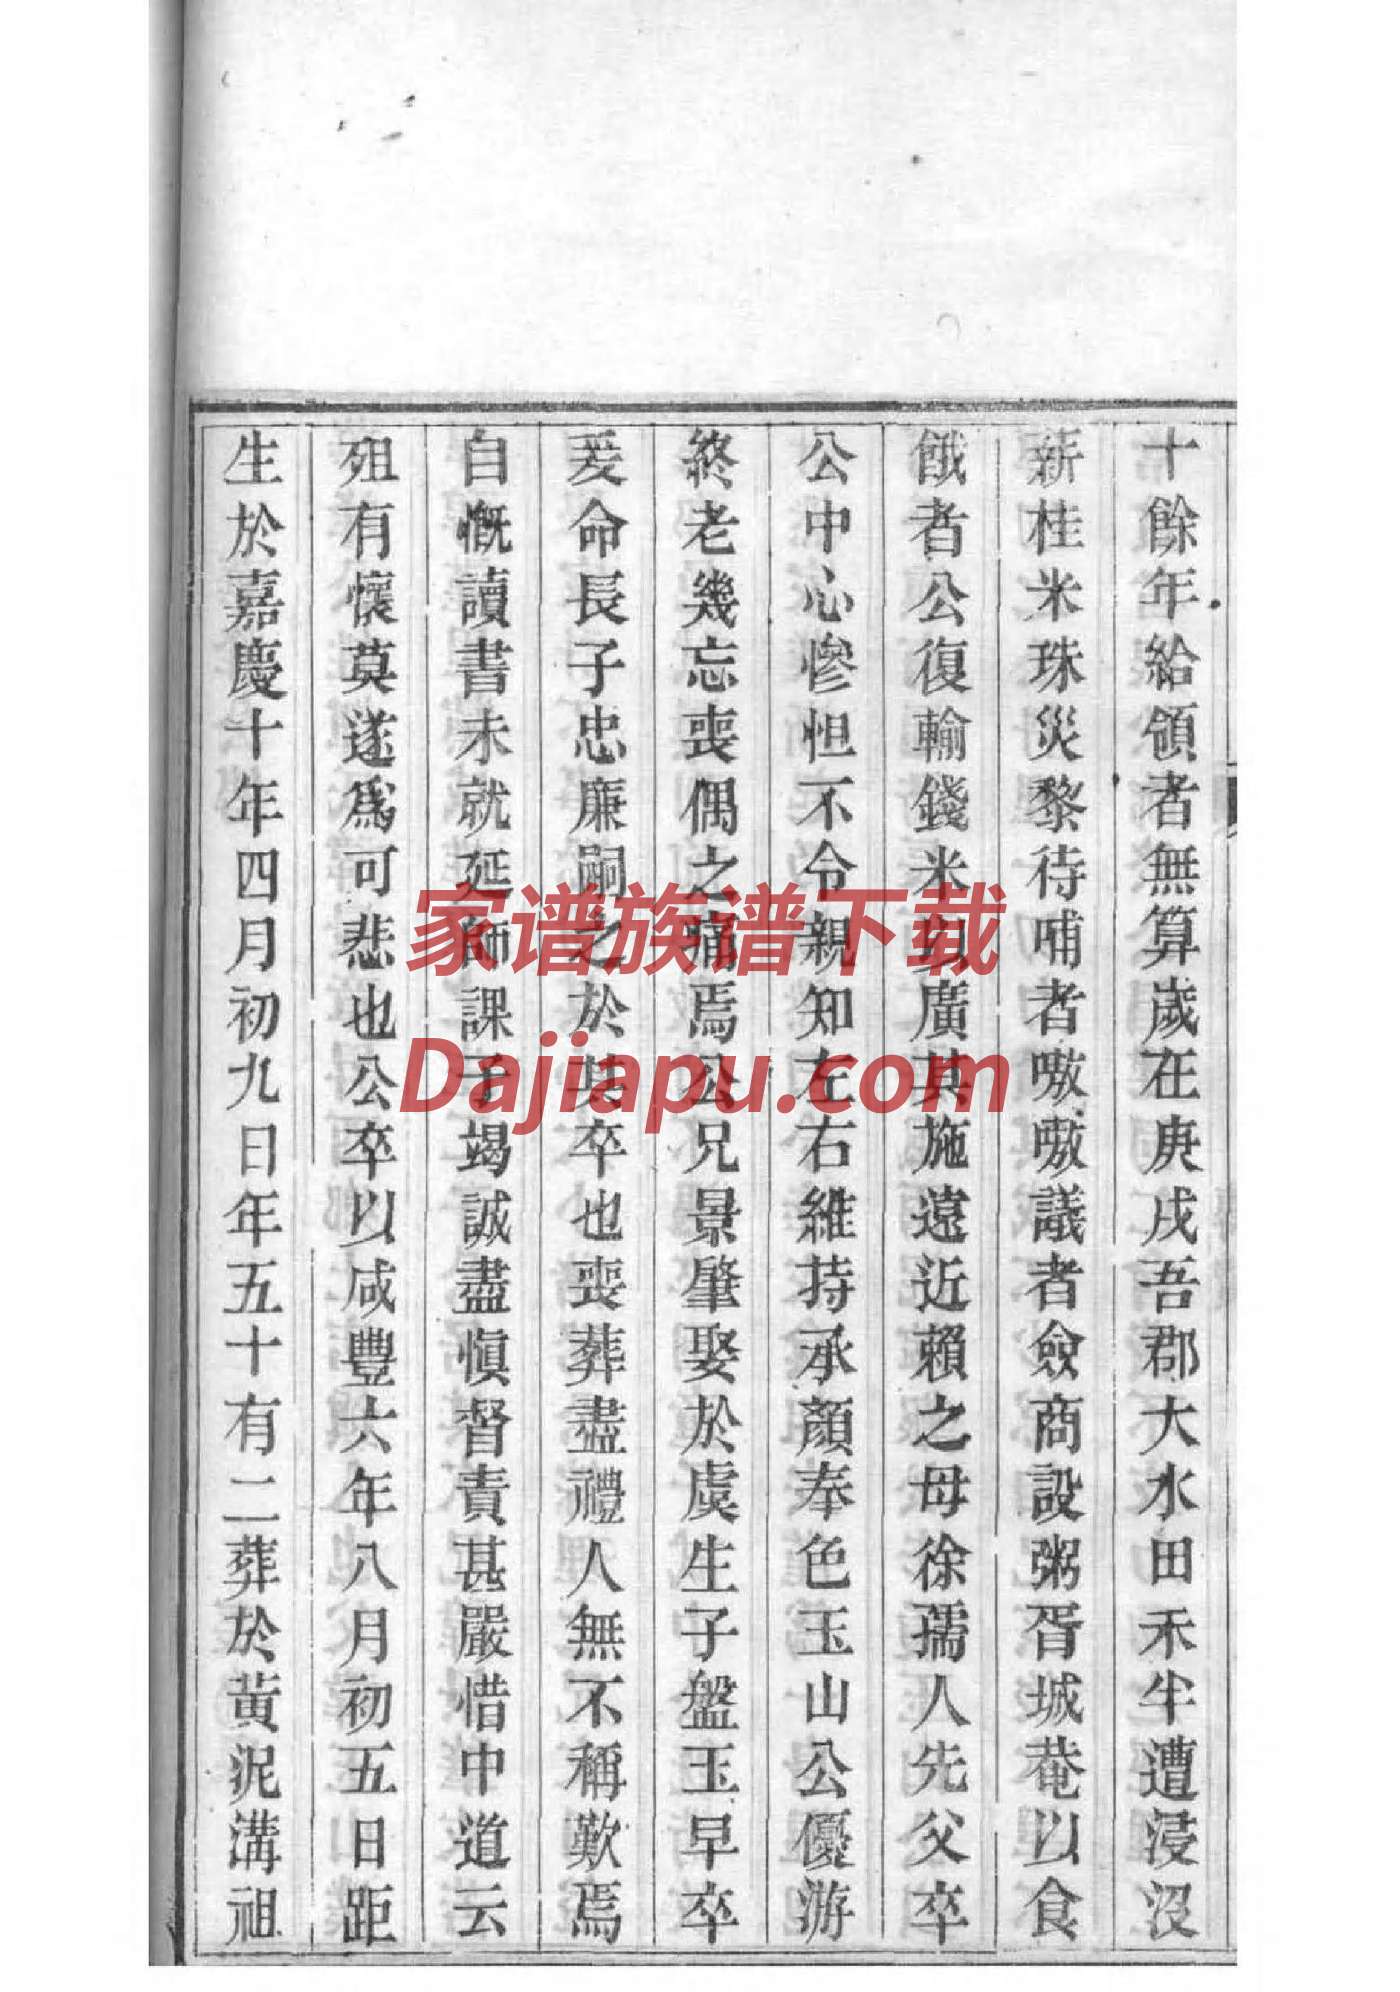 十餘年給領者無算歲在庚戌吾郡大水田禾半遭浸沒
薪桂米珠災黎待哺者嗷嗷議者僉商設粥胥城菴以食
餓者公復輸錢米以廣其施遠近賴之母徐孺人先父卒
公中心慘怛不令親知左右維持承顏奉色玉山公優游
終老幾忘喪偶之痛焉公兄景肇娶於虞生子盤玉早卒
爰命長子忠廉嗣之於其卒也喪葬盡禮人無不稱歎焉
自慨讀書未就延師課子竭誠盡慎督責甚嚴惜中道云
殂有懷莫遂爲可悲也公卒以咸豐六年八月初五日距
生於嘉慶十年四月初九日年五十有二葬於黃泥溝祖
家谱族谱下载
Dajiapu.com